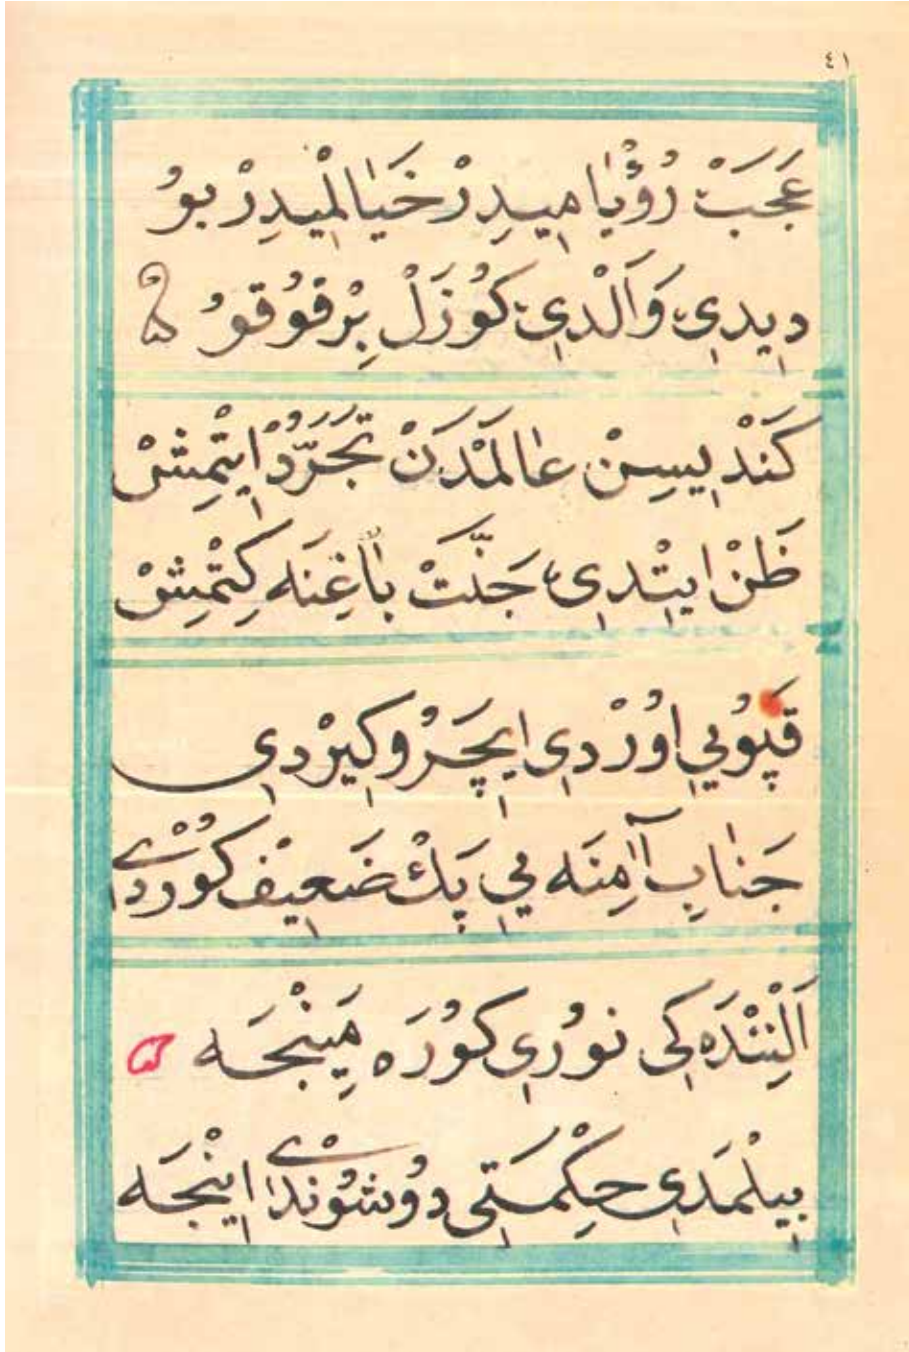 ٤١
عَجَبَ رُؤْيَا مِيدِرْ خَيَالْمِيدِرْ بُو
دِيدِي وَآلْدِي كُوزَلْ بِرْ قُوقُو
كَنْدِيسِنْ عَالَمْدَنْ تَجَرُّدْ اِيتْمِشْ
ظَنْ اِيتْدِي جَنَّتْ بَاغِنَه كِتْمِشْ
قَپُويِي اُورْدِي اِيچَرُو كِيرْدِي
جَنَابِ آمِنَه يِي پَكْ ضَعِيفْ كُورْدِي
اَلْنِنْدَه كِي نُورِي كُورَه مَينْجَه
بِيلْمَدِي حِكْمَتِي دُوشُونْدِي اِينْجَه